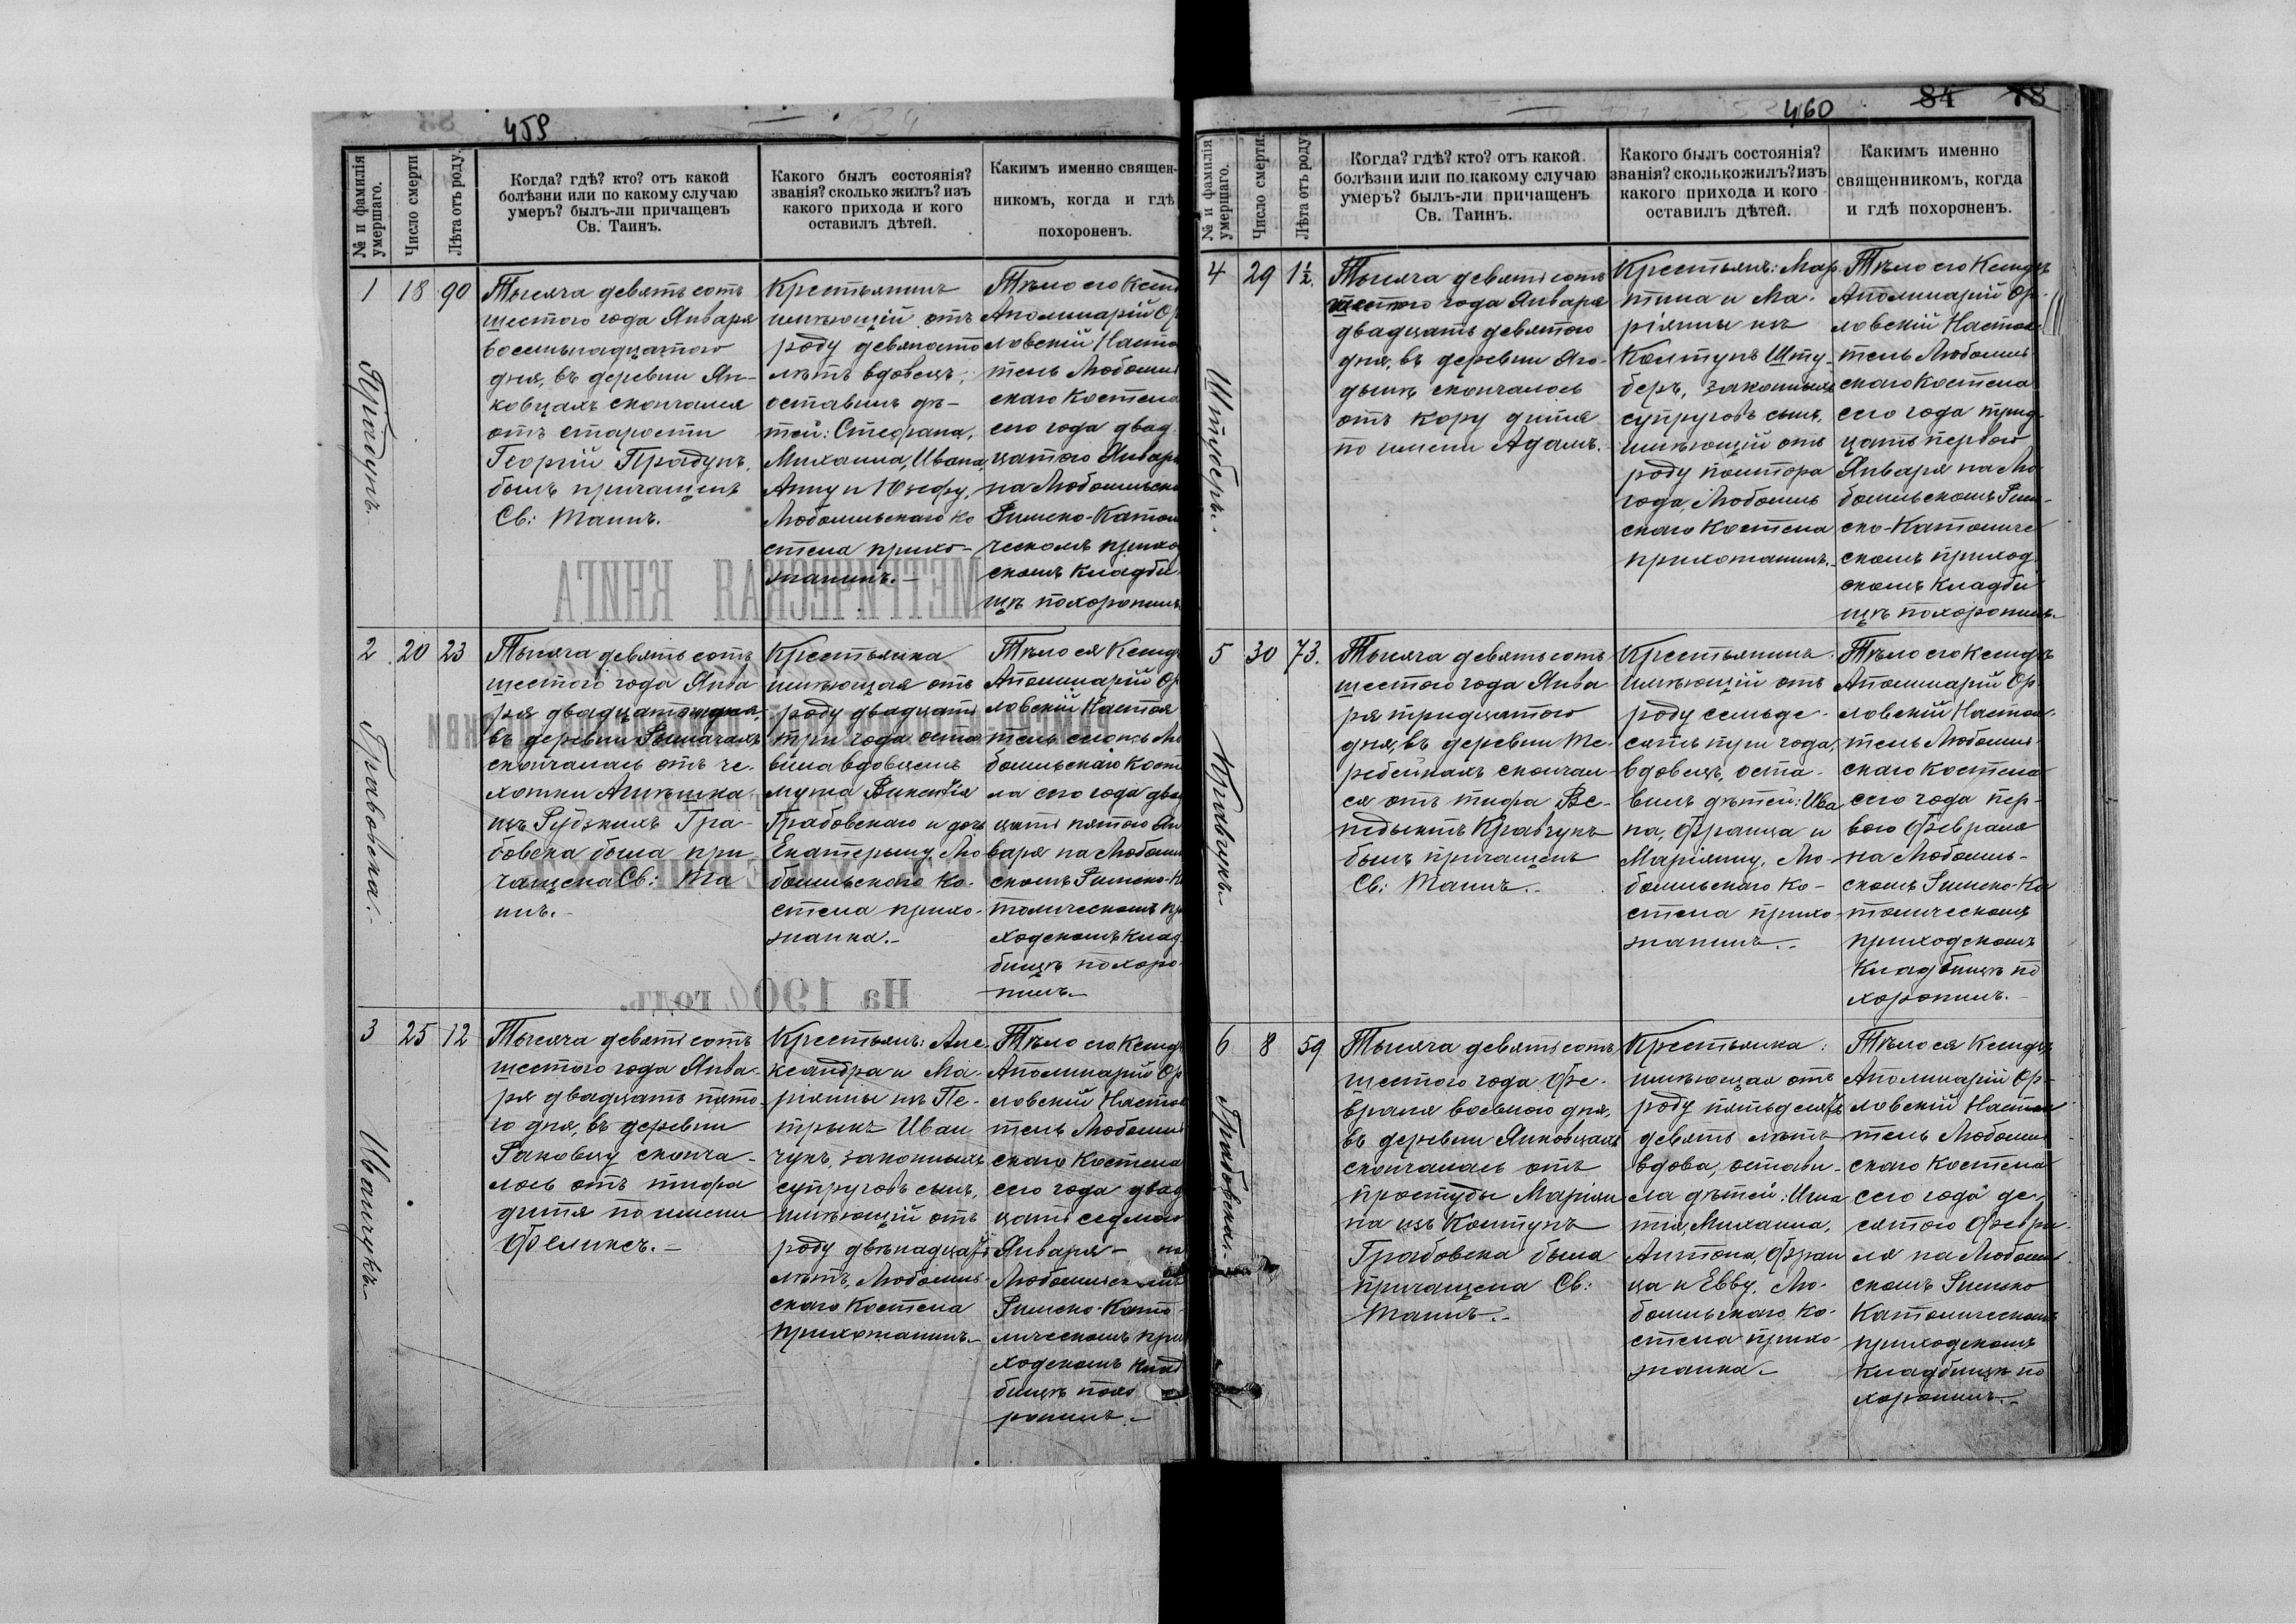 459
№ и фамилія умершаго.
Число смерти
Лѣта отъ роду.
Когда? гдѣ? кто? отъ какой
болѣзни или по какому случаю
умеръ? былъ-ли причащенъ
Св. Таинъ.
Какого былъ состоянія?
званія? сколько жилъ? изъ
какого прихода и кого
оставилъ дѣтей.
Каким​ъ именно священ-
никомъ, когда и гдѣ
похороненъ.
1
Прадунъ.
18
90
Тысяча девятьсотъ
шестого года Января
восемьнадцатого
дня, въ деревни Ян-
ковцахъ скончался
отъ старости
Георгій Прадунъ,
былъ причащенъ
Св: Таинъ.
Крестьянинъ
имѣющій отъ
роду девяносто
лѣтъ вдовецъ,
оставилъ дѣ-
тей: Стефана,
Михаила, Ивана,
Анну и Юзефу,
Любомльскаго ко
стела прихо-
жанинъ.-
Тѣло его Ксенд
Аполинарій Ор
ловскій Насто
тель Любомль
скаго Костела
сего года двад
цатого Январ
на Любомльско
Римско-Катол
ческомъ прихо
скомъ кладби
щѣ похоронилъ
2
Грабовска.
20
23
Тысяча девятьсотъ
шестого года Янва-
ря двадцатого дня,
въ деревни Рымачахъ
скончалась отъ че-
хотки Агнѣшка
изъ Рудзкихъ Гра-
бовска была при
чащена Св: Та
инъ.-
Крестьянка
имѣющая отъ
роду двадцать
три года оста
вила вдовцемъ
мужа Викентія
Грабовскаго и дочь
Екатерыну, Лю
бомльскаго Ко-
стела прихо-
жанка.-
Тѣло ея Ксенд
Аполинарій Ор
ловскій Настоя
тель Лю
бомльскаго Косте
ла сего года два
цать пятого Ян
варя на Любомл
скомъ Римско-К
толическомъ пр
ходскомъ клад
бищѣ похоро-
нилъ.-
3
Иванчукъ.
25
12
Тысяча девятьсотъ
шестого года Янва-
ря двадцать пято-
го дня, въ деревни
Раковцу сконча-
лось отъ тифа
дитя по имени
Феликсъ.-
Крестьянъ: Але-
ксандра и Ма-
ріянны изъ Пе-
трыкъ Иван
чукъ, законныхъ
супруговъ сынъ,
имѣющій отъ
роду двѣнадцать
лѣтъ, Любомль-
скаго Костела
прихожанинъ.-
Тѣло его Ксенд
Аполинарій Ор
ловскій Настоя
тель Любомль
скаго Костела
сего года двад
цать седмого
Января - на
Любомльскомъ
Римско-Като-
лическомъ при
ходскомъ клад
бищѣ похо
ронилъ.-
460
84
78
№ и фамилія умершаго.
Число смерти.
Лѣта отъ роду
Когда? гдѣ? кто? отъ какой
болѣзни или по какому случаю
умеръ? былъ-ли причащенъ
Св. Таинъ.
Какого былъ состоянія?
званія? сколько жилъ? изъ
какого прихода и кого
оставилъ дѣтей.
Какимъ именно
священникомъ, когда
и гдѣ похороненъ.
4
Штуберъ.
29
1½.
Тысяча девятьсотъ
шестого года Января
двадцать девятого
дня, въ деревни Яго-
дынѣ скончалось
отъ кору дитя
по имени Адамъ.
Крестьянъ: Мар-
тина и Ма-
ріянны изъ
Колтунъ Шту-
беръ, законныхъ
супруговъ сынъ,
имѣющій отъ
роду полтора
года, Любомль
скаго Костела
прихожанинъ.-
Тѣло его Ксендзъ
Аполинарій Ор-
ловскій Настоя-
тель Любомль
скаго Костела
сего года трид-
цать первого
Января на Лю-
бомльскомъ Рим-
ско-Католиче
скомъ приход-
скомъ кладби
щѣ похоронилъ.-
5
Кравчукъ.
30
73.
Тысяча девятьсотъ
шестого года Янва-
ря тридцатого
дня, въ деревни Те-
ребейкахъ скончал-
ся отъ тифа Бе-
недыктъ Кравчукъ
былъ причащенъ
Св: Таинъ.-
Крестьянинъ
имѣющій отъ
роду семьде-
сять три года,
вдовецъ, оста-
вилъ дѣтей: Ива
на, Франца и
Маріянну, Лю-
бомльскаго Ко-
стела прихо-
жанинъ.-
Тѣло его Ксендзъ
Аполинарій Ор-
ловскій Настоя-
тель Любомль-
скаго Костела
сего года пер-
вого Февраля
на Любомль-
скомъ Римско-Ка
толическомъ
приходскомъ
Кладбищѣ по
хоронилъ.-
6
Грабовска.
8
59
Тысяча девятьсотъ
шестого года Фе-
враля восьмого дня,
въ деревни Янковцахъ
скончалась отъ
простуды Маріян
на изъ Колтунъ
Грабовска была
причащена Св:
Таинъ.-
Крестьянка
имѣющая отъ
роду пятьдесять
девять лѣтъ
вдова, остави-
ла дѣтей: Игна
тія, Михаила,
Антона, Фран
ца и Евву, Лю-
бомльскаго Ко-
стела прихо-
жанка.-
Тѣло ея Ксендзъ
Аполинарій Ор-
ловскій Настоя
тель Любомль
скаго Костела
сего года де-
сятого Февра-
ля на Любомль
скомъ Римско
Католическомъ
приходскомъ
Кладбищѣ по
хоронилъ.-